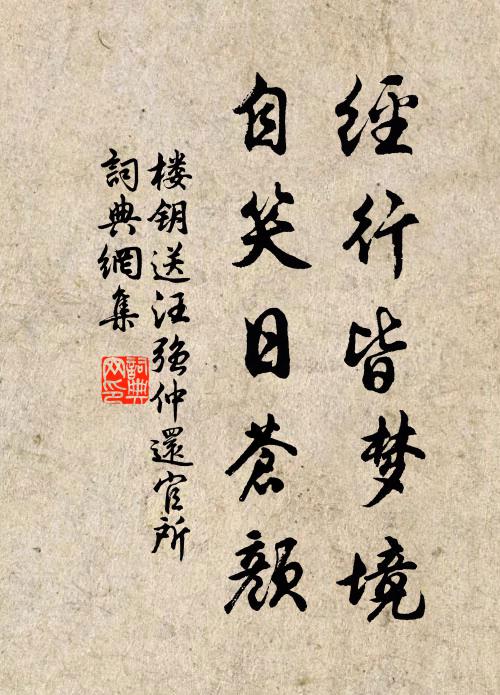 經行皆梦境
自笑日蒼顏
楼钥送汪强仲還官所
詞典網集
詞典网印